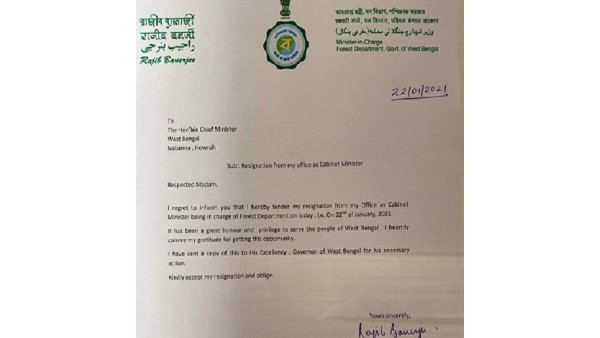 राजीव बनर्जी
راجیب بنرجی
Rajib Banerjee
মন্ত্রী, বন বিভাগ, পশ্চিমবঙ্গ সরকার
मंत्री, वन विभाग, पश्चिम बंगाल सरकार
Minister-in-Charge
Forest Department, Govt. of West Bengal
22/01/2021
To
The Hon'ble Chief Minister
West Bengal
Nabanna , Howrah
Sub : Resignation from my office as Cabinet Minister
Respected Madam,
I regret to inform you that I hereby tender my resignation from my Office as Cabinet
Minister being in charge of Forest Department on today , i.e. On 22nd of January, 2021.
It has been a great honour and privilege to serve the people of West Bengal . I heartily
convey my gratitude for getting this opportunity.
I have sent a copy of this to His Excellency , Governor of West Bengal for his necessary
action.
Kindly accept my resignation and oblige.
Yours sincerely,
Rajib Banerjee